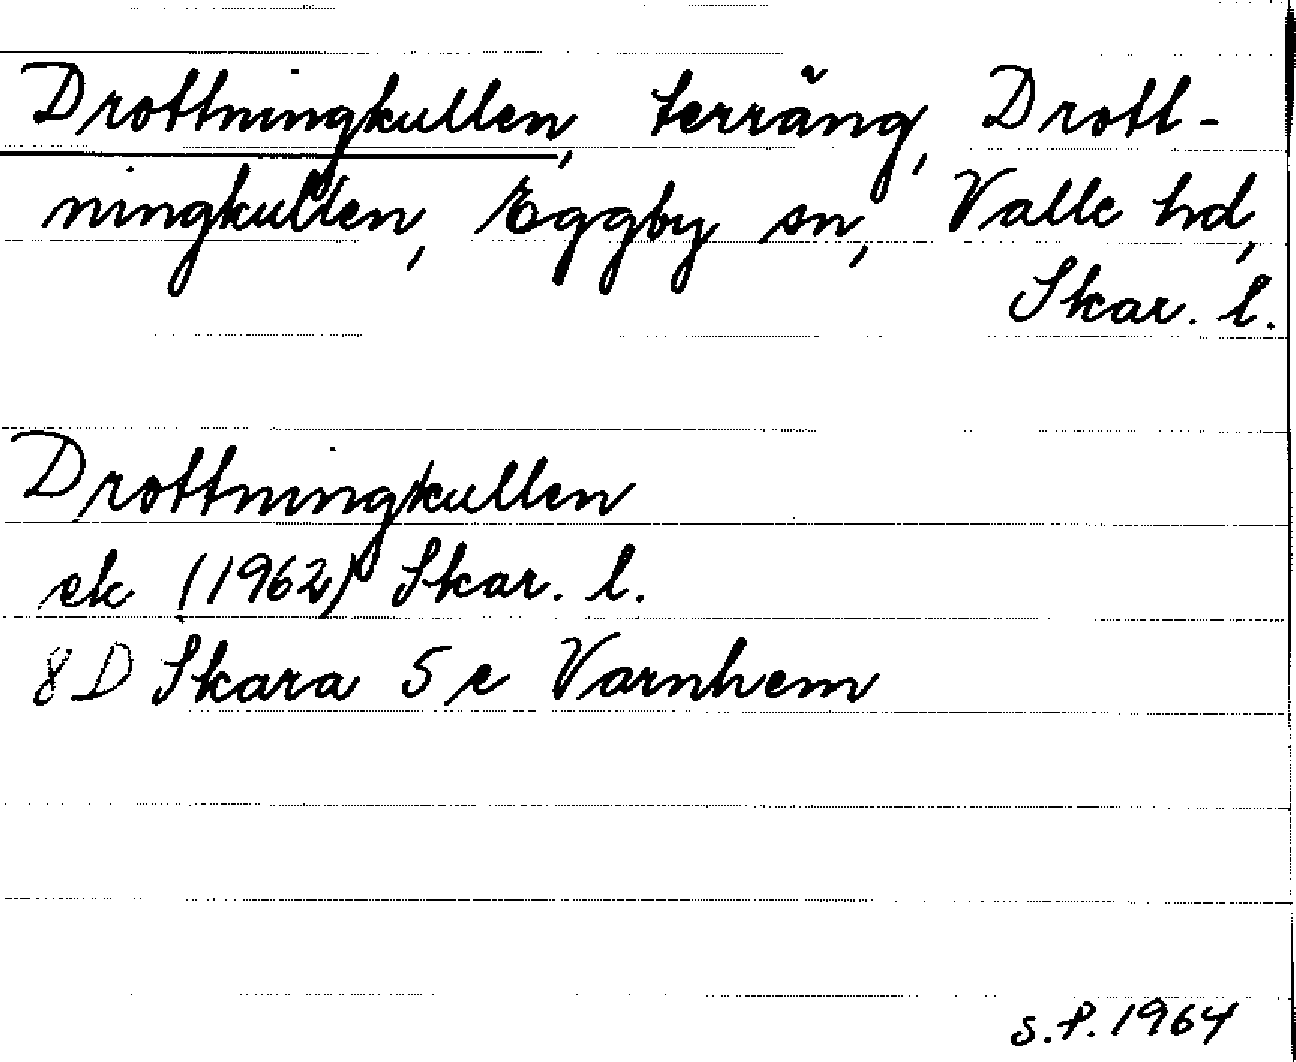 Drottningkullen, terräng, Drott-
ningkullen, Eggby sn, Valle hd,
Skar. l.
Drottningkullen
ek (1962) Skar. l.
8D Skara 5 e Varnhem
S.P. 1964